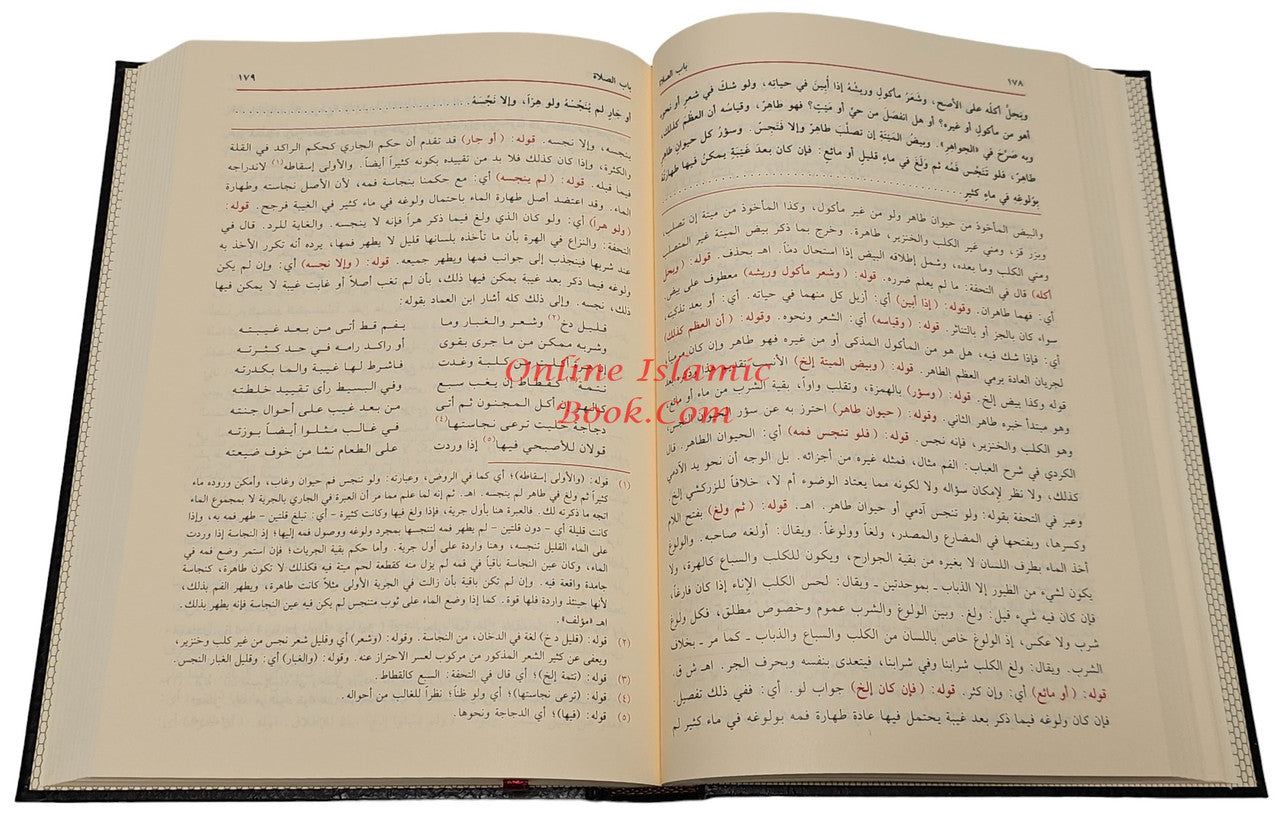 ١٧٨ باب الصلاة
ويحلُّ أكله على الأصح، وشَعَرُ مأكولٍ وريشُه إذا أُبينَ في حياته، ولو شك في شعرٍ أو نحوه
أهو من مأكولٍ أو غيره؟ أو هل انفصل من حيٍّ أو مَيتٍ؟ فهو طاهرٌ، وقياسه أن العظمَ كذلك،
وبه صَرَّحَ في «الجواهر». وبيضُ المَيْتة إن تصلَّب طاهرٌ وإلا فنَجِسٌ. وسؤرُ كل حيوانٍ طاهرٍ
طاهرٌ، فلو تنجَّس فمُه ثم وَلَغَ في ماءٍ قليلٍ أو مائعٍ: فإن كان بعدَ غَيبةٍ يمكنُ فيها طهارتُه
بوُلوغه في ماءٍ كثيرٍ
والبيض المأخوذ من حيوان طاهر ولو من غير مأكول، وكذا المأخوذ من ميتة إن تصلب،
وبزر قز، ومني غير الكلب والخنزير، طاهرة. وخرج بما ذكر بيض الميتة غير المتصلب
ومني الكلب وما بعده، وشمل إطلاقه البيض إذا استحال دماً. اهـ بحذف. قوله: (ويحل
أكله) قال في التحفة: ما لم يعلم ضرره. قوله: (وشعر مأكول وريشه) معطوف على بيض.
أي: فهما طاهران. وقوله: (إذا أبين) أي: أزيل كل منهما في حياته. أي: أو بعد تذكيته
سواء كان بالجز أو بالتناثر. قوله: (وقياسه) أي: الشعر ونحوه. وقوله: (أن العظم كذلك)
أي: فإذا شك فيه، هل هو من المأكول المذكى أو من غيره فهو طاهر وإن كان مرمياً
لجريان العادة برمي العظم الطاهر. قوله: (وبيض الميتة إلخ)
قوله وكذا بيض إلخ. قوله: (وسؤر) بالهمزة، وتقلب واواً، بقية الشرب من ماء أو مائع
وهو مبتدأ خبره طاهر الثاني. وقوله: (حيوان طاهر) احترز به عن سؤر الحيوان النجس
وهو الكلب والخنزير، فإنه نجس. قوله: (فلو تنجس فمه) أي: الحيوان الطاهر. قال
الكردي في شرح العباب: الفم مثال، فمثله غيره من أجزائه. بل الوجه أن نحو يد الآدمي
كذلك، ولا نظر لإمكان سؤاله ولا لكونه مما يعتاد الوضوء أم لا، خلافاً للزركشي إلخ.
وعبر في التحفة بقوله: ولو تنجس آدمي أو حيوان طاهر. اهـ. قوله: (ثم ولغ) بفتح اللام
وكسرها، وبفتحها في المضارع والمصدر، ولغاً وولوغاً. ويقال: أولغه صاحبه. والولوغ
أخذ الماء بطرف اللسان لا بغيره من بقية الجوارح، ويكون للكلب والسباع كالهرة، ولا
يكون لشيء من الطيور إلا الذباب ـ بموحدتين ـ ويقال: لحس الكلب الإناء إذا كان فارغاً،
فإن كان فيه شيء قيل: ولغ. وبين الولوغ والشرب عموم وخصوص مطلق، فكل ولوغ
شرب ولا عكس، إذ الولوغ خاص باللسان من الكلب والسباع والذباب ـ كما مر ـ بخلاف
الشرب. ويقال: ولغ الكلب شرابنا وفي شرابنا، فيتعدى بنفسه وبحرف الجر. اهـ ش ق.
قوله: (أو مائع) أي: وإن كثر. قوله: (فإن كان إلخ) جواب لو. أي: ففي ذلك تفصيل.
فإن كان ولوغه فيما ذكر بعد غيبة يحتمل فيها عادة طهارة فمه بولوغه في ماء كثير لم
باب الصلاة ١٧٩
أو جارٍ لم يُنَجِّسْهُ ولو هِرّاً، وإلا نَجَّسَهُ
ينجسه، وإلا نجسه. قوله: (أو جار) قد تقدم أن حكم الجاري كحكم الراكد في القلة
والكثرة، وإذا كان كذلك فلا بد من تقييده بكونه كثيراً أيضاً. والأولى إسقاطه(١) لاندراجه
فيما قبله. قوله: (لم ينجسه) أي: مع حكمنا بنجاسة فمه، لأن الأصل نجاسته وطهارة
الماء. وقد اعتضد أصل طهارة الماء باحتمال ولوغه في ماء كثير في الغيبة فرجح. قوله:
(ولو هراً) أي: ولو كان الذي ولغ فيما ذكر هراً فإنه لا ينجسه. والغاية للرد. قال في
التحفة: والنزاع في الهرة بأن ما تأخذه بلسانها قليل لا يطهر فمها، يرده أنه تكرر الأخذ به
عند شربها فينجذب إلى جوانب فمها ويطهر جميعه. قوله: (وإلا نجسه) أي: وإن لم يكن
ولوغه فيما ذكر بعد غيبة يمكن فيها ذلك، بأن لم تغب أصلاً أو غابت غيبة لا يمكن فيها
ذلك، نجسه. وإلى ذلك كله أشار ابن العماد بقوله:
قليل دخ(٢) وشعر والغبار وما بفم قط أتى من بعد غيبته
وشربه ممكن من ما جرى بقوى أو راكد رامه في حد كثرته
فاشرط لها غيبة والما بكدرته
كقطاط إن يغب سبع وفي البسيط رأى تقييد خلطته
أكل المجنون ثم أتى من بعد غيب على أحوال جنته
دجاجة خليت ترعى نجاستها(٤) في غالب مثلوا أيضاً بوزته
قولان للأصبحي فيها(٥) إذا وردت على الطعام نشا من خوف ضيعته
(١) قوله: (والأولى إسقاطه)؛ أي كما في الروض، وعبارته: ولو تنجس فم حيوان وغاب، وأمكن وروده ماء
كثيراً ثم ولغ في طاهر لم ينجسه. اهـ. ثم إنه لما علم مما مر أن العبرة في الجاري بالجرية لا بمجموع الماء
اتجه ما ذكرته لك. فالعبرة هنا بأول جرية، فإذا ولغ فيها وكانت كثيرة – أي: تبلغ قلتين – طهر فمه به، وإذا
كانت قليلة أي – دون قلتين – لم يطهر فمه لتنجسها بمجرد ولوغه ووصول فمه إليها؛ إذ النجاسة إذا وردت
على الماء القليل تنجسه، وهنا واردة على أول جرية. وأما حكم بقية الجريات؛ فإن استمر وضع فمه في
الماء، وكان عين النجاسة باقياً في فمه لم يزل منه كقطعة لحم ميتة فيه فكذلك لا تكون طاهرة، كنجاسة
جامدة واقعة فيه. وإن لم تكن باقية بأن زالت في الجرية الأولى مثلاً كانت طاهرة، ويطهر الفم بذلك،
لأنها حينئذ واردة فلها قوة. كما إذا وضع الماء على ثوب متنجس لم يكن فيه عين النجاسة فإنه يطهر بذلك.
اهـ «مؤلف».
(٢) قوله: (قليل دخ) لغة في الدخان، من النجاسة. وقوله: (وشعر) أي وقليل شعر نجس من غير كلب وخنزير،
ويعفى عن كثير الشعر المذكور من مركوب لعسر الاحتراز عنه. وقوله: (والغبار) أي: وقليل الغبار النجس.
(٣) قوله: (تتمة إلخ)؛ أي قال في التحفة: السبع كالقطاط.
(٤) قوله: (ترعى نجاستها)؛ أي ولو ظناً؛ نظراً للغالب من أحواله.
(٥) قوله: (فيها)؛ أي الدجاجة ونحوها.
Online Islamic
Book.Com